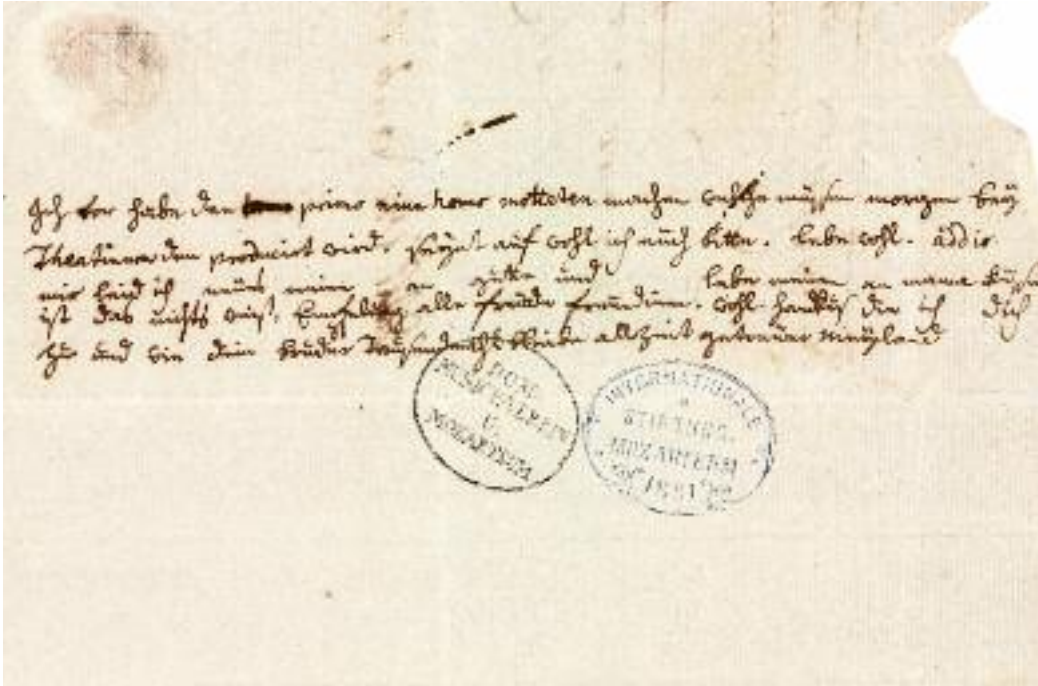 Ich vor habe den primo eine homo motteten machen welche müssen morgen beÿ
Theatinern dem producirt wird. auf wohl ich euch bitte. lebe wohl. addio
mir leid ich neües meine an gutte und lebe meinen an mama küsse
ist das nichts weis. alle freünde freündinen. wohl. handkus die ich dich
und wie dein bruder bleibe allzeit getreuer Maÿland
DOM
MUSIKVEREIN
U.
MOZARTEUM
INTERNATIONALE
STIFTUNG
MOZARTEUM
1881